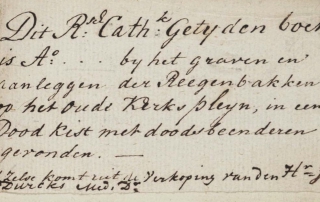 Dit R: Cath: Getyden boek
is Aº. . . . by het graven en
aanleggen der Reegenbakken
op het oude Kerks pleyn, in een
Dood kist met doodsbeenderen
gevonden. —
komt uit de Verkoping van den Hr
Durcks Med. Dr